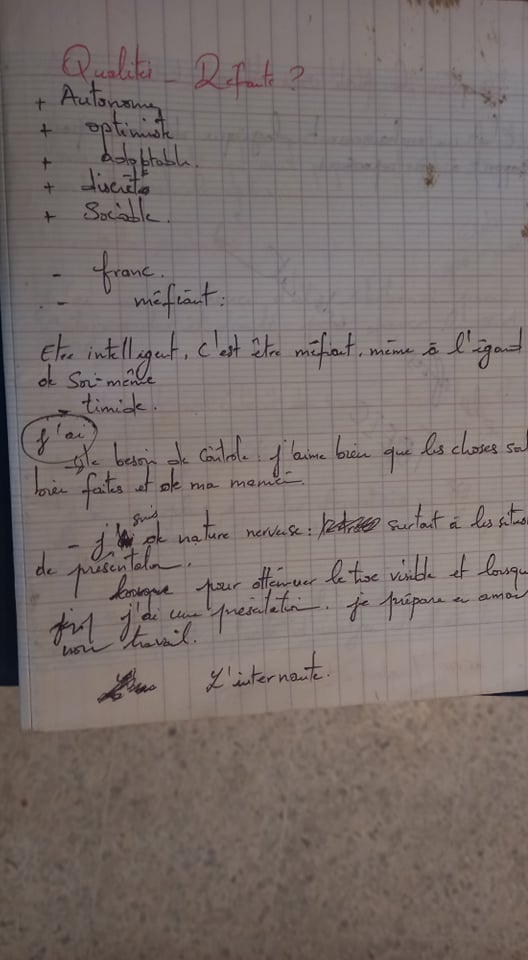 Qualités - Défauts ?
+ Autonome
+ optimiste
+ adaptable.
+ discrète
+ Sociable.
- franc.
- méfiant :
Etre intelligent, c'est être méfiant, même à l'égard
de soi-même
- timide.
j'ai
- le besoin de contrôle : j'aime bien que les choses
bien faites et de ma
- j' suis de nature nerveuse : surtout à les
de présentation.
pour atténuer le trac visible et
j'ai une présentation. je prépare en
mon travail.
L'internaute.